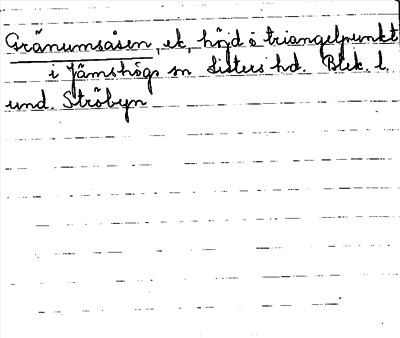 Gränumsåsen, ek, höjd o triangelpunkt
i Jämshögs sn Listers hd. Blek. l.
und. Ströbyn